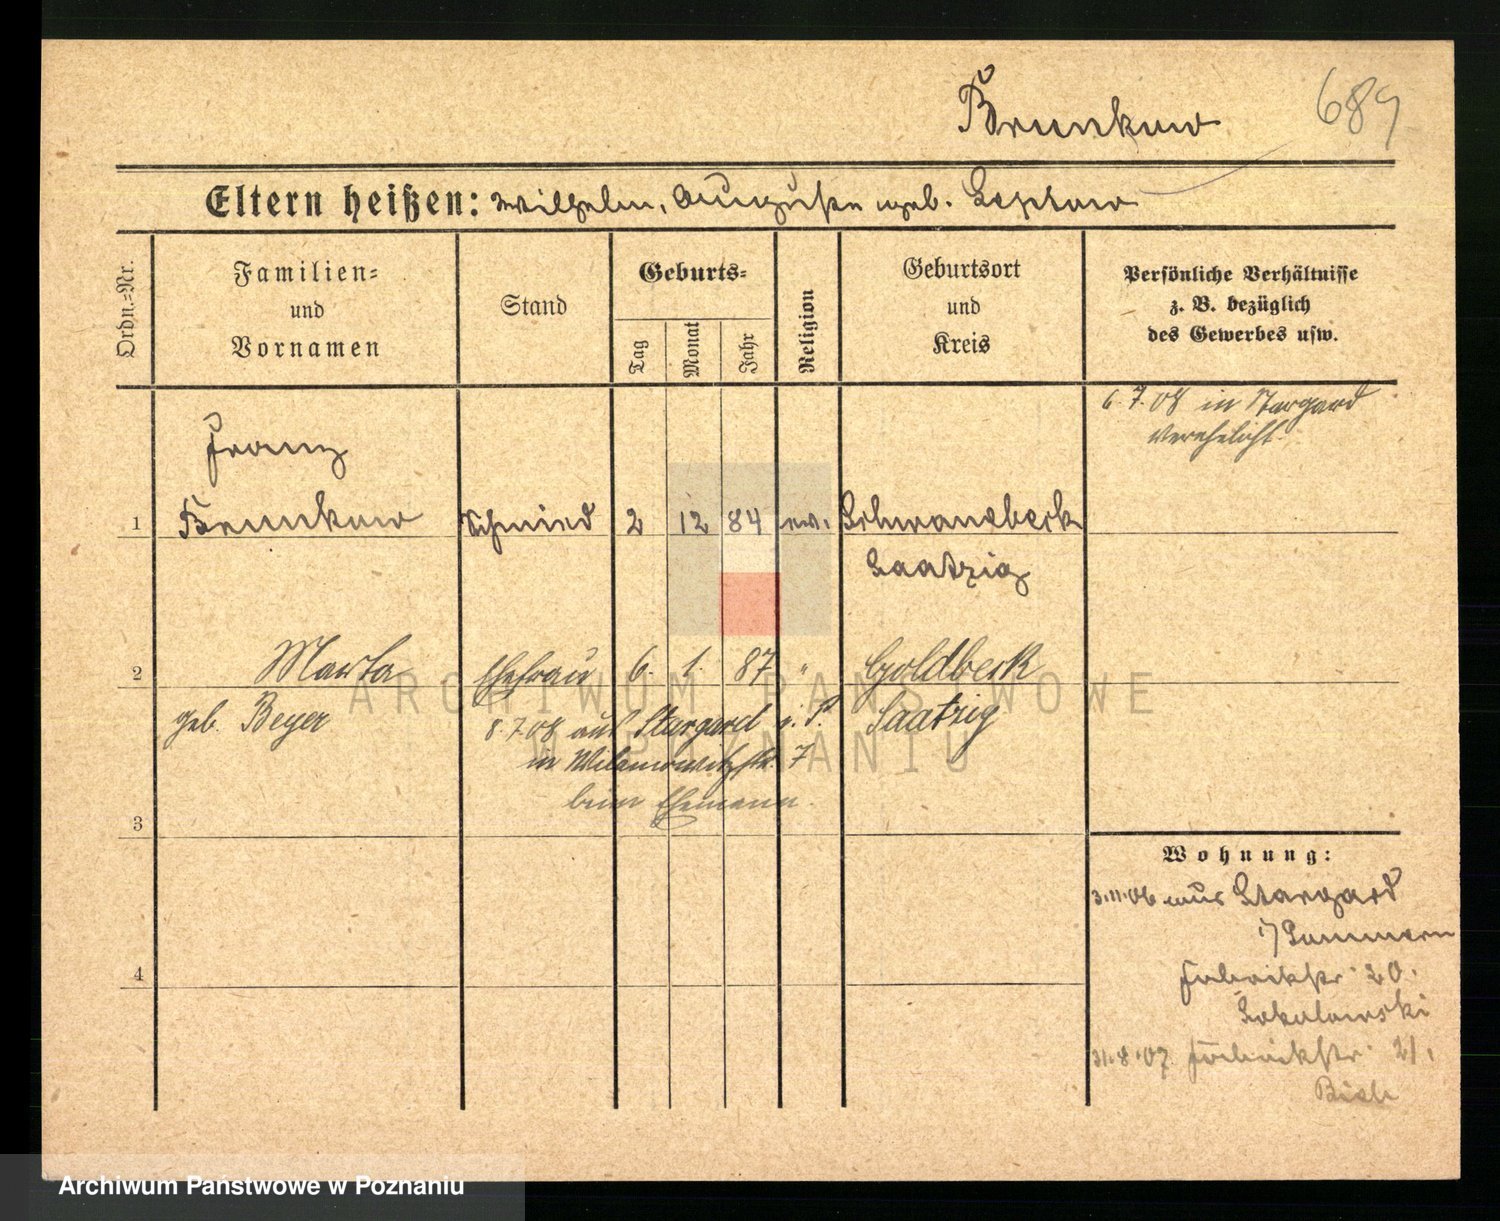 Brunkow
689
Eltern heißen: Wilhelm, Auguste geb.
Ordn.=Nr.
Familien=
und
Vornamen
Stand
Geburts=
Tag
Monat
Jahr
Religion
Geburtsort
und
Kreis
Persönliche Verhältnisse
z. B. bezüglich
des Gewerbes usw.
6.7.08 in Stargard
verehelicht.
Franz
1 Brunkow Schmied 2 12 84 ev. Schwanebeck
Saatzig
2 Marta Ehefrau 6. 1. 87 " Goldbeck
geb. Beyer Saatzig
8.7.08 aus Stargard i. P.
in Wilamowitzstr. 7
beim Ehemann.
3
4
Wohnung:
3.11.06 aus Stargard
i/Pommern
Fabrikstr. 20.
Sokolowski
31.8.07 Fabrikstr. 21.
ARCHIWUM PAŃSTWOWE
W POZNANIU
Archiwum Państwowe w Poznaniu